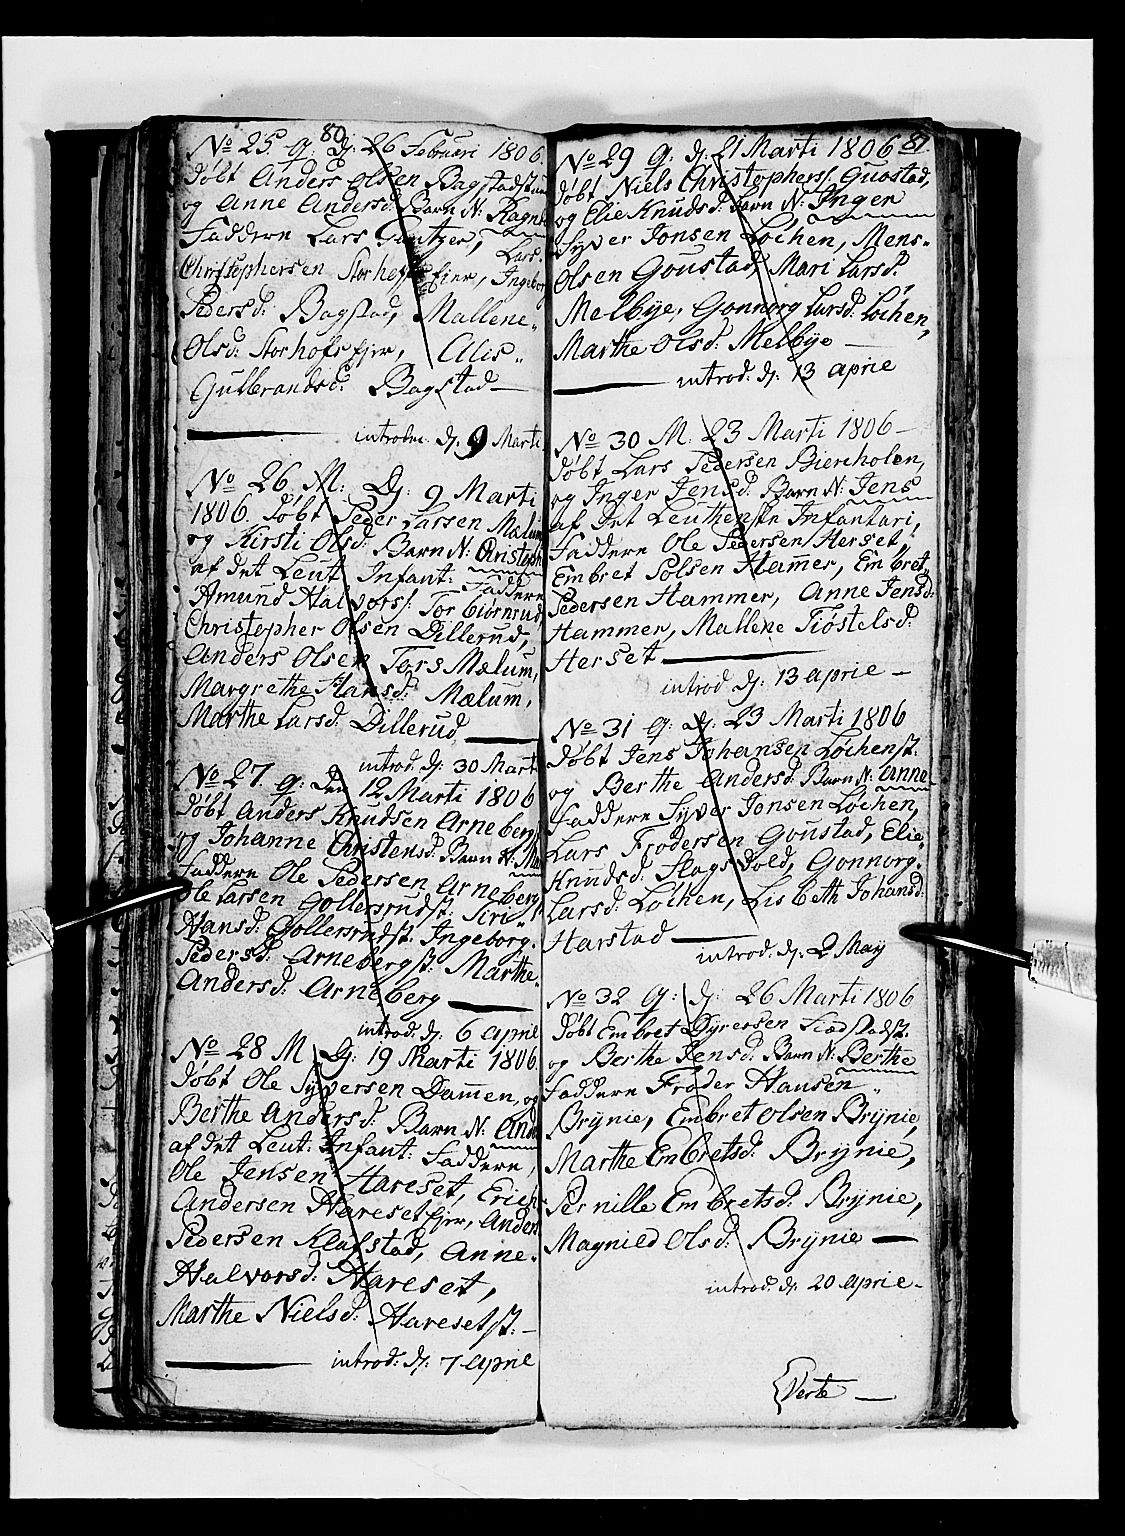 80
No 25 q: dj: 26 Februari 1806.
døbt Anders Olsen Bagstadstuen
og Anne Andersd: Barn N: Ragne
Faddere Lars Gautzer, Lars
Christophersen Storhofs fier, Ingeborg
Pedersd: Bagstad, Mallene
Olsd: Storhofs fier, Alis
Gulbrandsd: Bagstad
introdu: dj: 9 Marti
No 26 M: dj: 9 Marti
1806. døbt Peder Larsen Mælum
og Kirsti Olsd: Barn N: Christoph
af det Leut Infant: Faddere
Amund Halvors: Tor biørnrud,
Christopher Olsen Dillerud,
Anders Olsen Fors Mælum,
Margrethe Hansd: Mælum,
Marthe Larsd: Dillerud
introd: dj: 30 Marti
No 27 q: den 12 Marti 1806
døbt Anders Knudsen Arneberg
og Johanne Christensd: Barn N: Ma
Faddere Ole Pedersen Arneberg
Ole Larsen Gollersrudst: Siri
Hansd: Gollersrudst: Ingeborg
Pedersd: Arnebergst: Marthe
Andersd: Arneberg
introd: dj: 6 April
No 28 M dj: 19 Marti 1806.
døbt Ole Syversen Dammen, og
Berthe Andersd: Barn N: Ande
af det Leut: Infant: Faddere,
Ole Jensen Hareset, Erich
Andersen Hareset fier, Anders
Pedersen Klafstad, Anne
Halvorsd: Hareset,
Marthe Nielsd: Haresetst:
introd: dj: 7 April
81
No 29 q: dj: 21 Marti 1806
døbt Niels Christophers: Gustad,
og Elie Knudsd: Barn N: Inger
Syver Jonsen Løchen, Mens
Olsen Goustad, Mari Larsd:
Melbye, Gonnorg Larsd: Løchen,
Marthe Olsd: Melbye
introd: dj: 13 April
No 30 M: 23 Marti 1806
døbt Lars Pedersen Biercholen,
og Inger Jensd: Barn N: Jens
af det Leuthenste Infantari,
Faddere Ole Pedersen Herset,
Embret Polsen Hammer, Embret
Pedersen Hammer, Anne Jensd:
Hammer, Mallene Tiøstelsd:
Herset
introd: dj: 13 April
No 31 q: dj: 23 Marti 1806
døbt Jens Johansen Løchenst.
og Berthe Andersd: Barn N: Anne
Faddere Syver Jonsen Løchen,
Lars Frodersen Goustad, Elie
Knudsd: Flags Vold, Gonnorg
Larsd: Løchen, Lisbeth Johansd:
Harstad
introd: dj: 2 May
No 32 q: dj: 26 Marti 1806
døbt Embret Dyresen Stadst:
og Berthe Jensd: Barn N: Berthe
Faddere Froder Hansen
Brynie, Embret Olsen Brynie,
Marthe Embretsd: Brynie,
Pernille Embretsd: Brynie,
Magnild Olsd: Brynie
introd: dj: 20 April
Verte